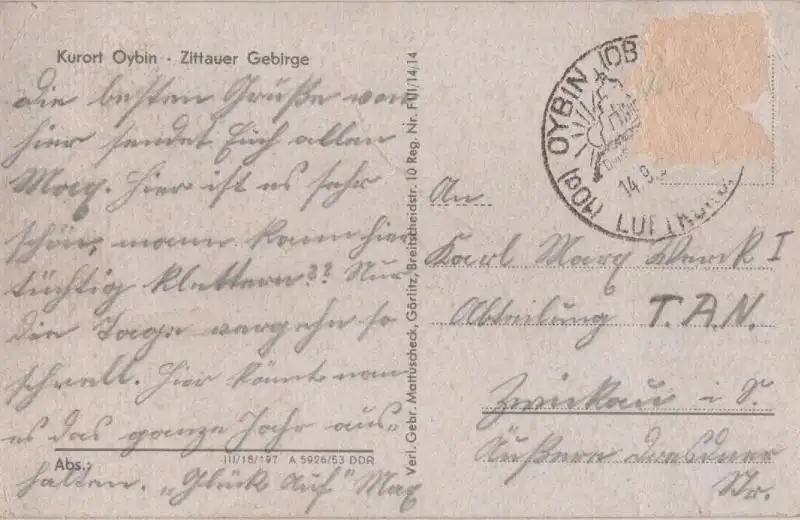 Kurort Oybin · Zittauer Gebirge
Die besten Grüße von
hier sendet Euch allen
Max. Hier ist es sehr
schön, mann kann hier
tüchtig klettern?? Nur
die Tage vergehn so
schnell. Hier könnt man
es das ganze Jahr aus-
halten. „Glück Auf" Max
Abs.:
III/18/197 A 5926/53 DDR
Verl. Gebr. Mattuscheck, Görlitz, Breitscheidstr. 10 Reg. Nr. FUI/14/14
(10a) OYBIN
LUFTKURO
14.9.
An
Karl Marx Werk I
Abteilung T.A.N.
Zwickau i. S.
Äußere Dresdner
Str.